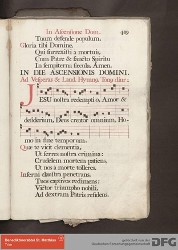 In Ascensione Dom. 419
Tuum defende populum.
Gloria tibi Domine,
Qui surrexisti a mortuis,
Cum Patre & sancto Spiritu
In sempiterna sæcula. Amen.
IN DIE ASCENSIONIS DOMINI.
Ad Vesperas & Laud. Hymnus.
JESU nostra redemptio, Amor &
desiderium, Deus creator omnium, Ho-
mo in fine temporum.
Quæ te vicit clementia,
Ut ferres nostra crimina:
Crudelem mortem patiens,
Ut nos a morte tolleres.
Inferni claustra penetrans,
Tuos captivos redimens:
Victor triumpho nobili,
Ad dextram Patris residens.
Benediktinerabtei St. Matthias
Trier
DFG